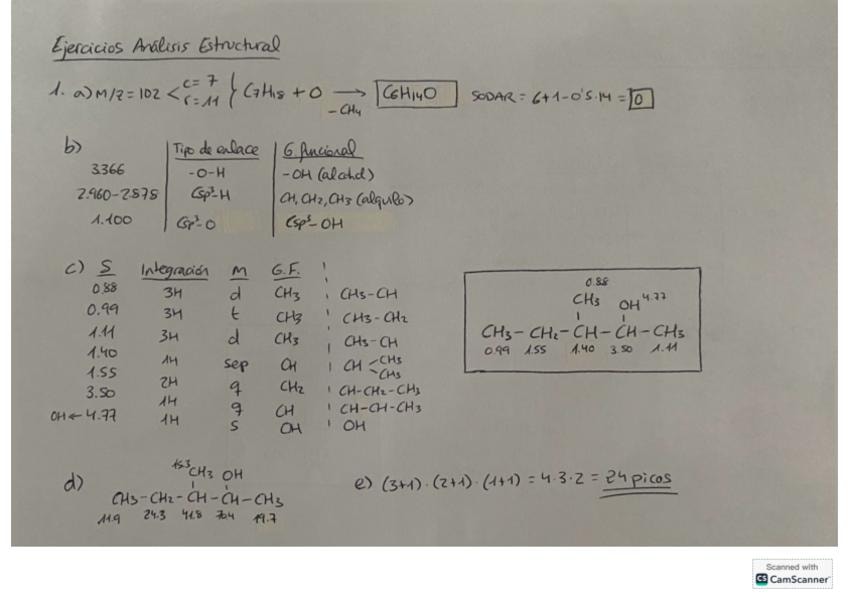 Ejercicios Análisis Estructural
1. a) M/Z = 102 < C = 7 r = 11 } C7H18 + O → -CH4 C6H14O SODAR = 6+1-0'5·14 = 0
b) Tipo de enlace G. funcional
3.366 -O-H -OH (alcohol)
2.960-2.878 Csp³-H CH, CH2, CH3 (alquilo)
1.100 Csp³-O Csp³-OH
c) S Integración M G.F.
0.88 3H d CH3 CH3-CH
0.99 3H t CH3 CH3-CH2
1.11 3H d CH3 CH3-CH
1.40 1H sep CH CH < CH3 CH3
1.55 2H q CH2 CH-CH2-CH3
3.50 1H q CH CH-CH-CH3
OH ← 4.77 1H s OH OH
0.88
CH3 OH 4.77
CH3-CH2-CH-CH-CH3
0.99 1.55 1.40 3.50 1.11
d) 15.3 CH3 OH
CH3-CH2-CH-CH-CH3
11.9 24.3 41.8 70.4 19.7
e) (3+1)·(2+1)·(1+1) = 4·3·2 = 24 picos
Scanned with
CS CamScanner